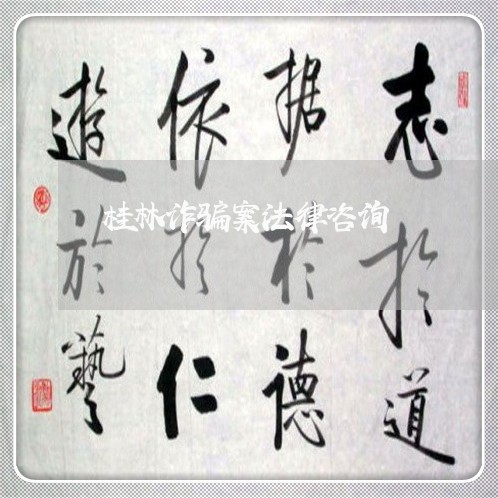 志於道
据於德
依於仁
遊於藝
桂林诈骗案法律咨询